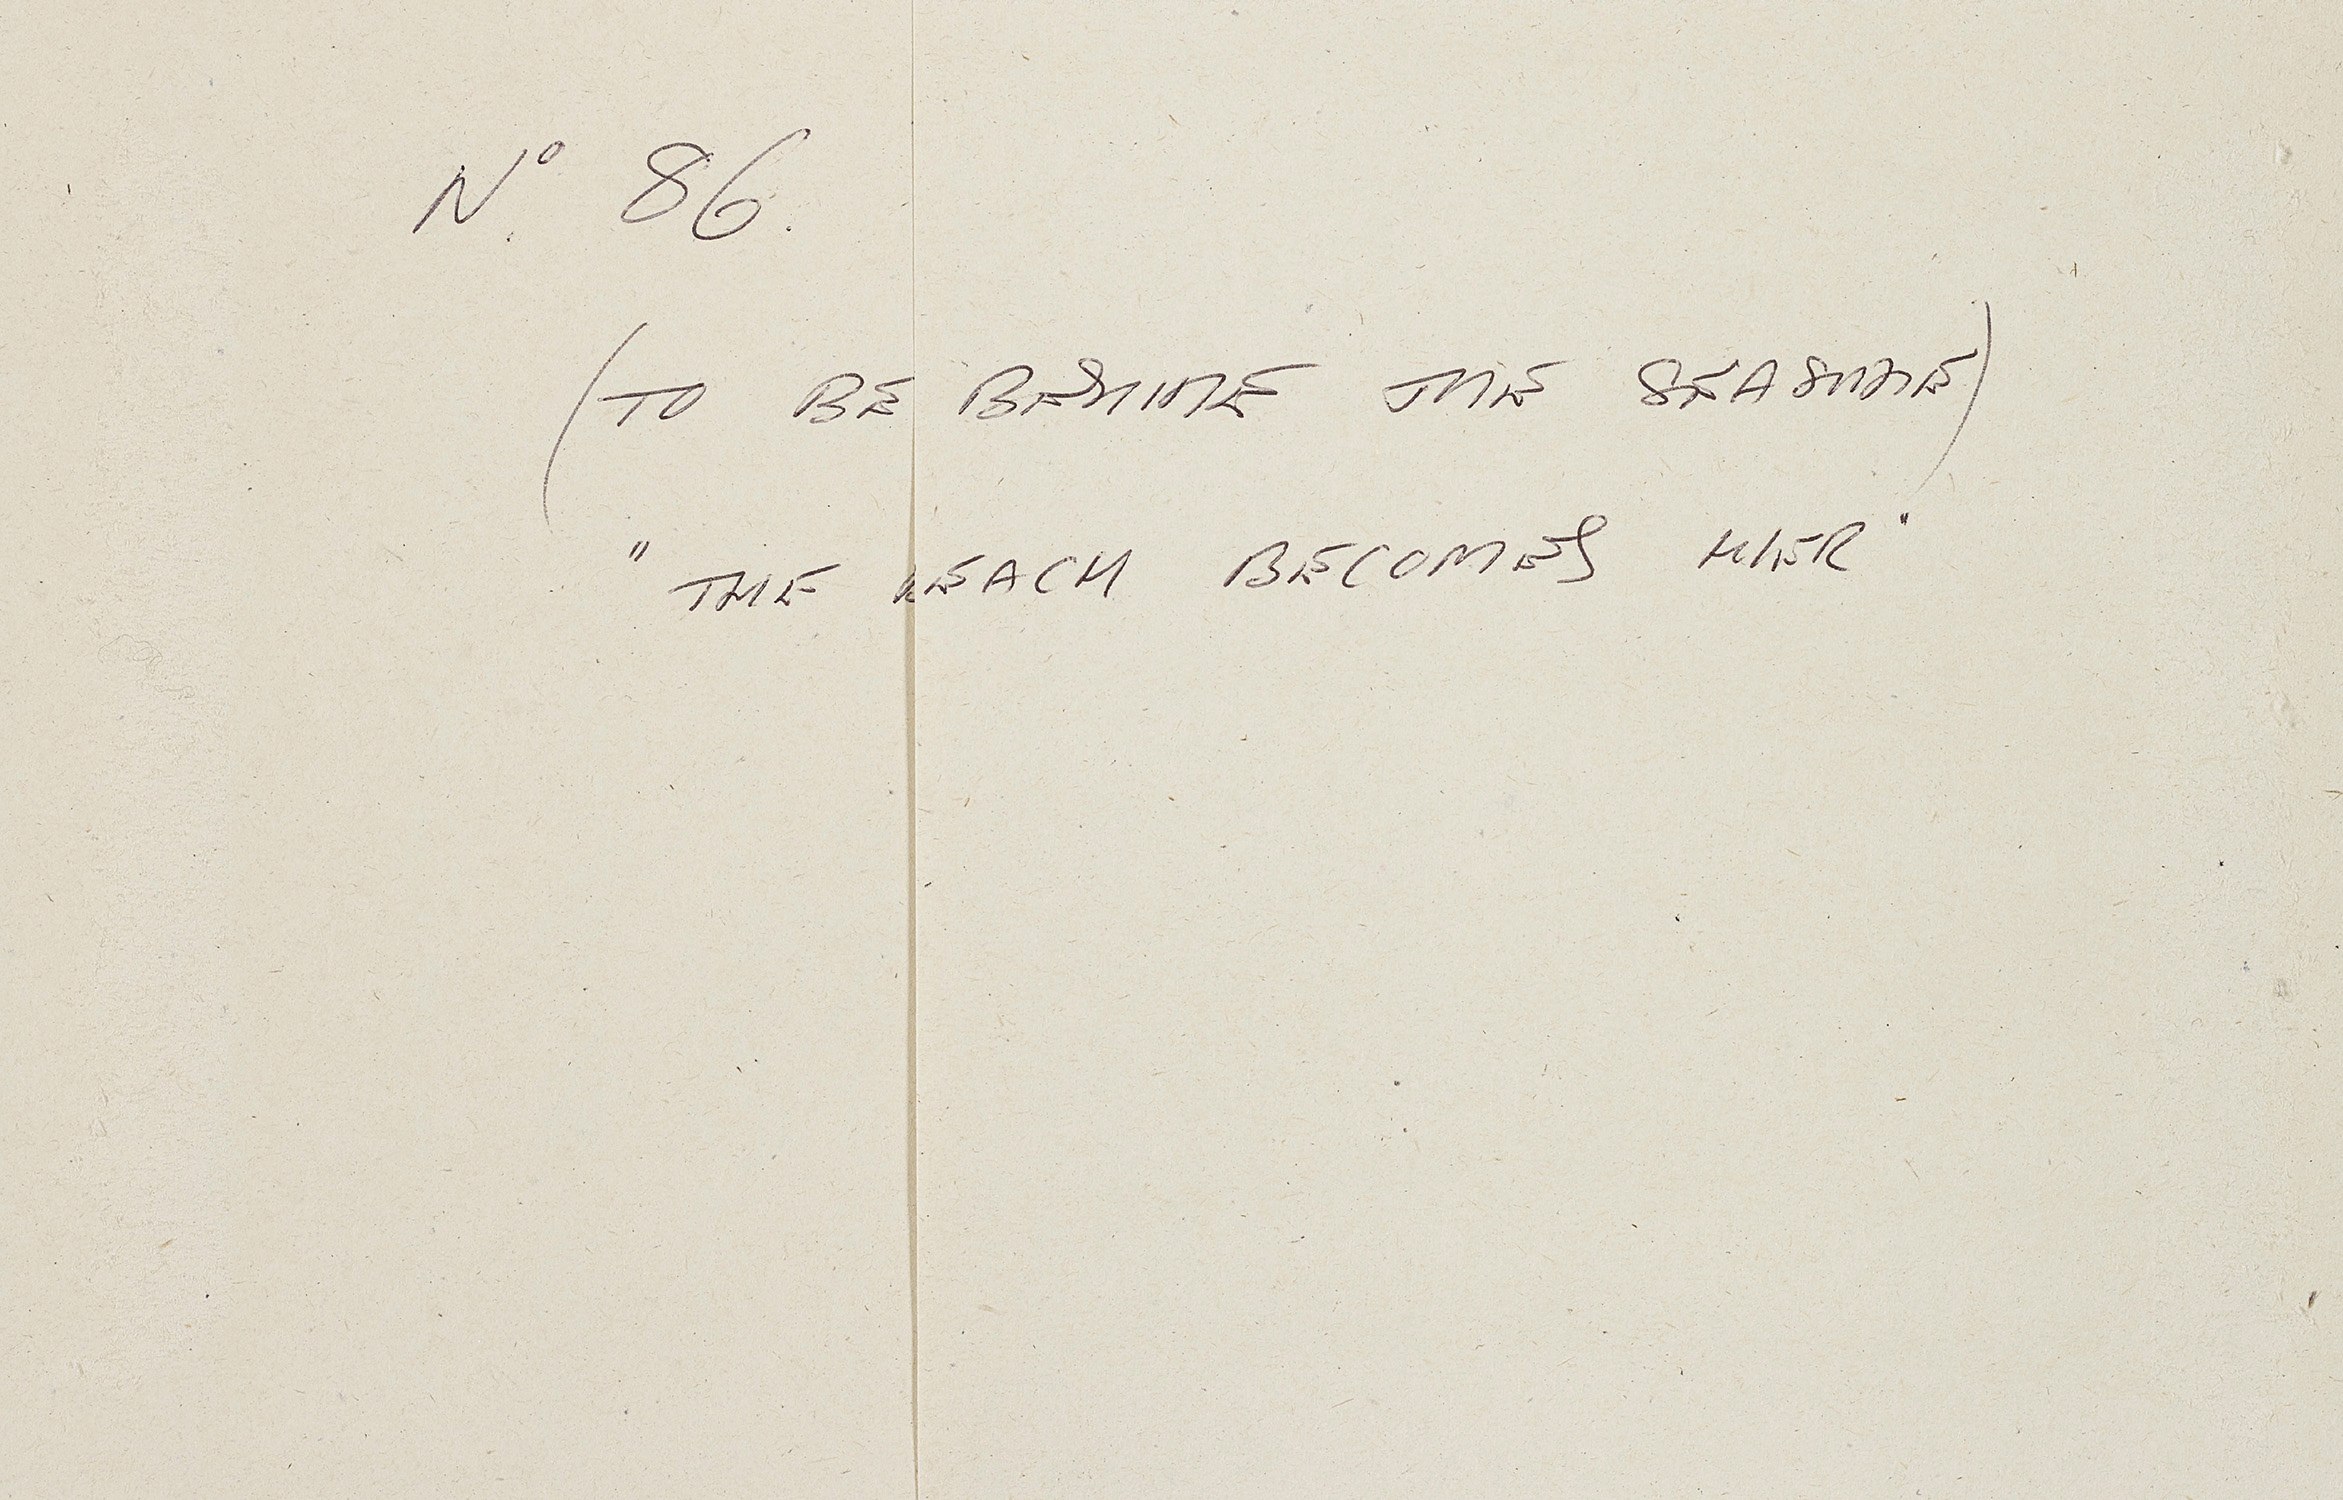 N° 86.
(TO BE BESIDE THE SEASIDE)
"THE BEACH BECOMES HER"